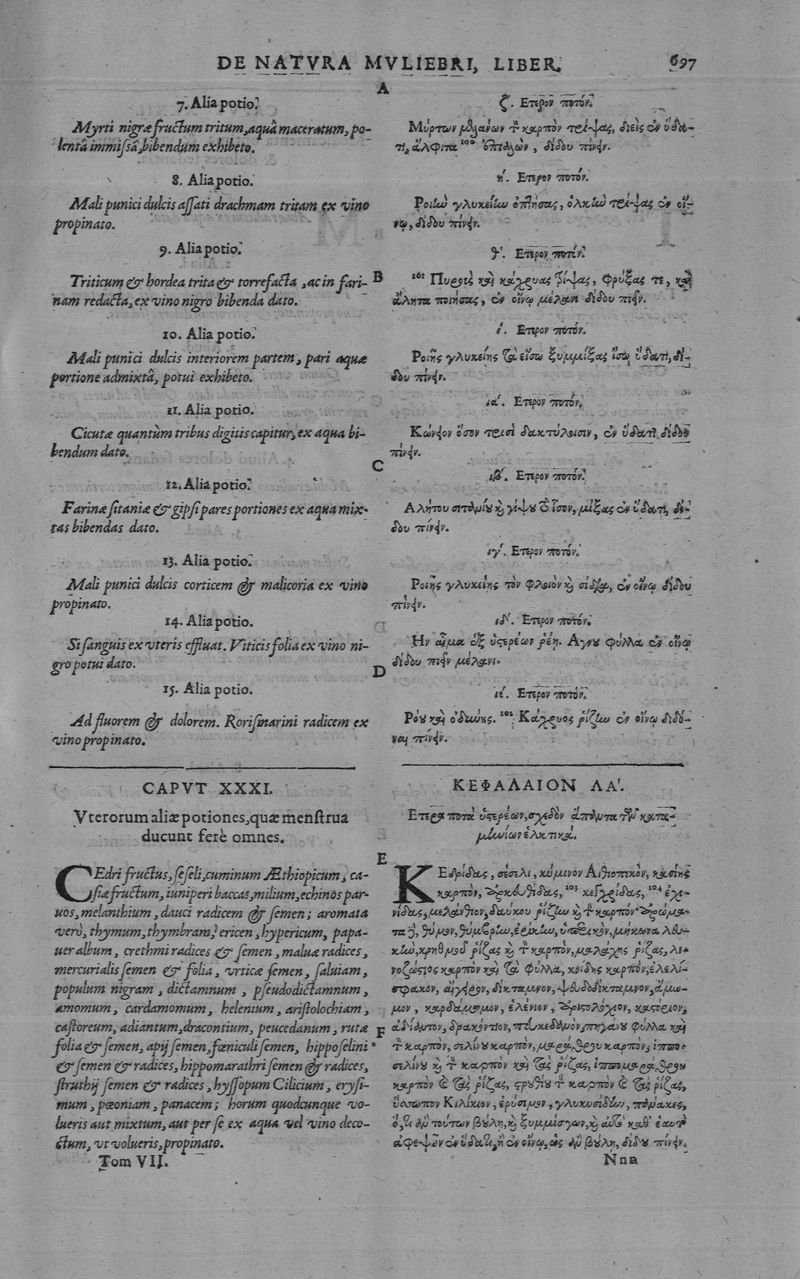 DE NATVRA MVLIEBRI, LIBER.
697
A
7. Alia potio.
Myrti nigræ fructum tritum, aquâ maceratum, po-
lentâ immissâ, bibendum exhibeto.
8. Alia potio.
Mali punici dulcis assati drachmam tritam ex vino
propinato.
9. Alia potio.
Triticum & hordea trita & torrefacta, ac in fari-
nam redacta, ex vino nigro bibenda dato.
10. Alia potio.
Mali punici dulcis interiorem partem, pari aquæ
portione admixtâ, potui exhibeto.
11. Alia potio.
Cicutæ quantùm tribus digitis capitur, ex aqua bi-
bendum dato.
12. Alia potio.
Farinæ sitaniæ & gipsi pares portiones ex aqua mix-
tas bibendas dato.
13. Alia potio.
Mali punici dulcis corticem & malicoria ex vino
propinato.
14. Alia potio.
Si sanguis ex vteris effluat. Viticis folia ex vino ni-
gro potui dato.
15. Alia potio.
Ad fluorem & dolorem. Rorismarini radicem ex
vino propinato.
CAPVT XXXI.
Vterorum aliæ potiones, quæ menstrua
ducunt ferè omnes.
CEdri fructus, seseli, cuminum Æthiopicum, ca-
siæ fructum, iuniperi baccas, milium, echinos par-
uos, melanthium, dauci radicem & semen; aromata
verò, thymum, thymbram, ericen, hypericum, papa-
uer album, crethmi radices & semen, maluæ radices,
mercurialis semen & folia, vrticæ semen, saluiam,
populum nigram, dictamnum, pseudodictamnum,
amomum, cardamomum, helenium, aristolochiam,
castoreum, adiantum, dracontium, peucedanum, rutæ
folia & semen, apij semen, fœniculi semen, hipposelini
& semen & radices, hippomarathri semen & radices,
struthij semen & radices, hyssopum Cilicium, erysi-
mum, pæoniam, panacem; horum quodcunque vo-
lueris aut mixtum, aut per se ex aqua vel vino deco-
ctum, vt volueris, propinato.
Tom VII.
B
C
D
E
F
ζ'. Ετερον ποτόν.
Μύρτων μελάνων τὸν καρπὸν τρίψας, διεὶς ἐν ὕδα-
τι, ἄλφιτα 100 ἐπιβαλὼν, δίδου πίνειν.
η'. Ετερον ποτόν.
Ροιὴν γλυκείην ὀπτήσας, ὁλκὴν τρίψας ἐν οἴ-
νῳ, δίδου πίνειν.
θ'. Ετερον ποτόν.
101 Πυροὺς καὶ κάχρυας τρίψας, φρύξας τε, καὶ
ἄλητα ποιήσας, ἐν οἴνῳ μέλανι δίδου πιεῖν.
ι'. Ετερον ποτόν.
Ροιῆς γλυκείης τὰ εἴσω ξυμμίξας ἴσῳ ὕδατι, δί-
δου πίνειν.
ια'. Ετερον ποτόν.
Κώνειον ὅσον τρισὶ δακτύλοισιν, ἐν ὕδατι δίδου
πίνειν.
ιβ'. Ετερον ποτόν.
Αλήτου σιτανίου καὶ γύψου τὸ ἴσον, μίξας ἐν ὕδατι, δί-
δου πίνειν.
ιγ'. Ετερον ποτόν.
Ροιῆς γλυκείης τὸν φλοιὸν καὶ σίδια, ἐν οἴνῳ δίδου
πίνειν.
ιδ'. Ετερον ποτόν.
Ην αἷμα ἐξ ὑστερέων ῥέῃ. Αγνου φύλλα ἐν οἴνῳ
δίδου πιεῖν μέλανι.
ιε'. Ετερον ποτόν.
Ρόου καὶ ὀδύνης. 102 Κάχρυος ῥίζαν ἐν οἴνῳ διδό-
ναι πίνειν.
ΚΕΦΑΛΑΙΟΝ ΛΑ'.
Ετερα ποτὰ ὑστερέων, σχεδὸν ἅπαντα τῶν κατα-
μηνίων ἑλκτικά.
ΚΕδρίδας, σέσελι, κύμινον Αἰθιοπικὸν, κασίης
καρπὸν, ἀρκευθίδας, 103 κεγχρίδας, 104 ἐχι-
νίδας, μελάνθιον, δαύκου ῥίζαν καὶ τὸν καρπόν· ἀρώμα-
τα δὲ, θύμον, θύμβρίην, ἐρίκην, ὑπέρικον, μήκωνα λευ-
κὴν, κρήθμου ῥίζας καὶ τὸν καρπὸν, μαλάχης ῥίζας, λι-
νοζώστιος καρπὸν καὶ τὰ φύλλα, κνίδης καρπὸν, ἐλελί-
σφακον, αἴγειρον, δίκταμνον, ψευδοδίκταμνον, ἄμω-
μον, καρδάμωμον, ἑλένιον, ἀριστολόχιον, καστόριον,
ἀδίαντον, δρακόντιον, πευκέδανον, πηγάνου φύλλα καὶ
τὸν καρπὸν, σελίνου καρπὸν, μαράθρου καρπὸν, ἱππο-
σελίνου καὶ τὸν καρπὸν καὶ τὰς ῥίζας, ἱππομαράθρου
καρπὸν καὶ τὰς ῥίζας, στρουθίου τὸν καρπὸν καὶ τὰς ῥίζας,
ὕσσωπον Κιλίκιον, ἐρύσιμον, γλυκυσίδην, πάνακες,
ὅ,τι ἂν τούτων βούλῃ, καὶ ξυμμίσγων, καὶ αὐτὸ καθ' ἑαυτὸ
ἀφεψῶν ἐν ὕδατι, ἢ ἐν οἴνῳ, ὡς ἂν βούλῃ, δίδου πίνειν.
Nnn